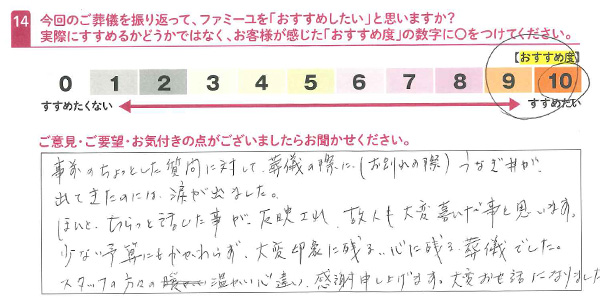 14 今回のご葬儀を振り返って、ファミーユを「おすすめしたい」と思いますか?
実際にすすめるかどうかではなく、お客様が感じた「おすすめ度」の数字に○をつけてください。
【おすすめ度】
0 1 2 3 4 5 6 7 8 9 10
すすめたくない すすめたい
ご意見・ご要望・お気付きの点がございましたらお聞かせください。
事前のちょっとした質問に対して、葬儀の際に(お別れの際)うなぎ丼が、
出てきたのには、涙が出ました。
ほんと、ちらっと話した事が、反映され、故人も大変喜いだ事と思います。
少ない予算にもかかわらず、大変印象に残る、心に残る葬儀でした。
スタッフの方々の温かい心遣い、感謝申し上げます。大変お世話になりました